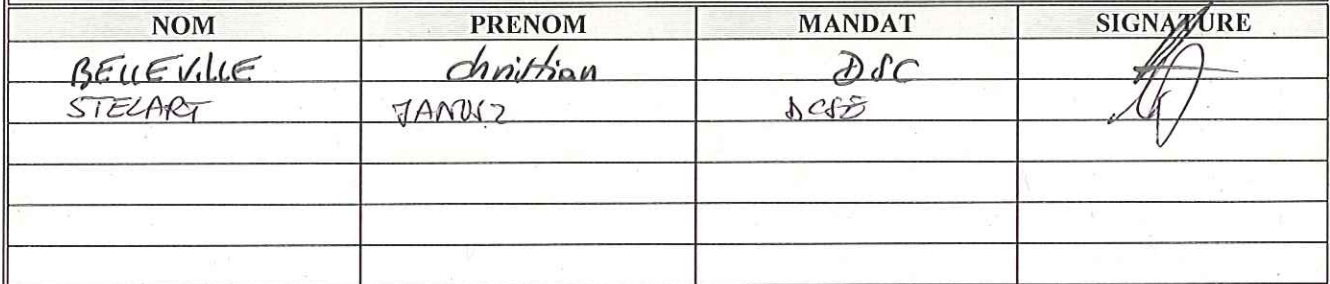 NOM PRENOM MANDAT SIGNATURE
BELLEVILLE Christian DSC
STELART JANUSZ DCSE